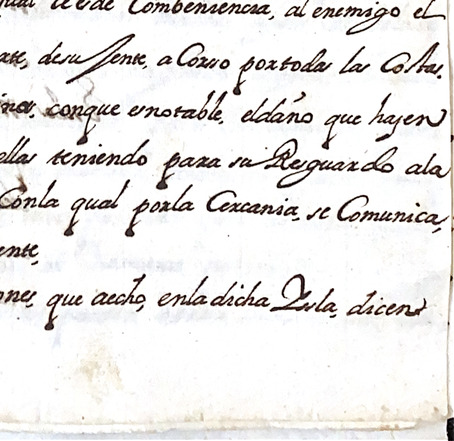 qual le es de Combeniencia, al enemigo el
arte, de su Jente, a Corso por todas las Costas,
ines, conque es notable, el daño que hasen
ellas teniendo para su Resguardo a la
Con la qual por la Cercania, se Comunica,
ente,
ones, que a echo, en la dicha Ysla, dicen